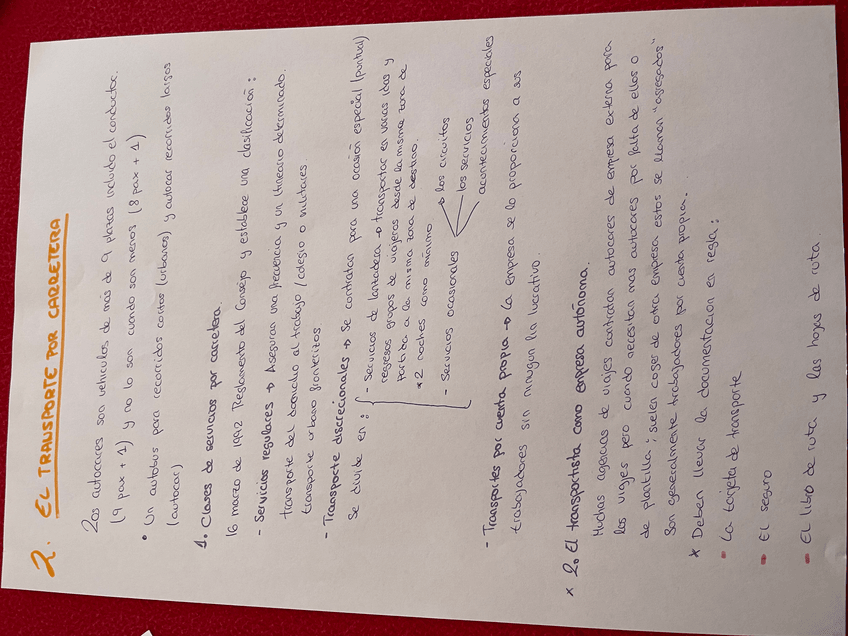 2. EL TRANSPORTE POR CARRETERA
Los autocares son vehículos de más de 9 plazas incluido el conductor.
(9 pax + 1) y no lo son cuando son menos (8 pax + 1)
• Un autobus para recorridos cortos (urbanos) y autocar recorridos largos
(autocar)
1. Clases de servicios por carretera.
16 marzo de 1992 Reglamento del Consejo y establece una clasificación:
- Servicios regulares → Aseguran una frecuencia y un itinerario determinado.
transporte del domicilio al trabajo / colegio o militares
transporte urbano fronterizos
- Transporte discrecionales → Se contratan para una ocasión especial (puntual)
Se divide en:
- Servicios de lanzadera → transportar en varias idas y
regresos grupos de viajeros desde la misma zona de
partida a la misma zona de destino.
* 2 noches como mínimo
- Servicios ocasionales
→ los circuitos
los servicios
acontecimientos especiales
- Transportes por cuenta propia → La empresa se lo proporciona a sus
trabajadores sin ningun fin lucrativo.
* 2. El transportista como empresa autónoma.
Muchas agencias de viajes contratan autocares de empresa externa para
los viajes pero cuando necesitan mas autocares por falta de ellos o
de plantilla; suelen coger de otra empresa estos se llaman "agregados"
Son generalmente trabajadores por cuenta propia.
* Deben llevar la documentación en regla:
- La tarjeta de transporte
- El seguro
- El libro de ruta y las hojas de ruta